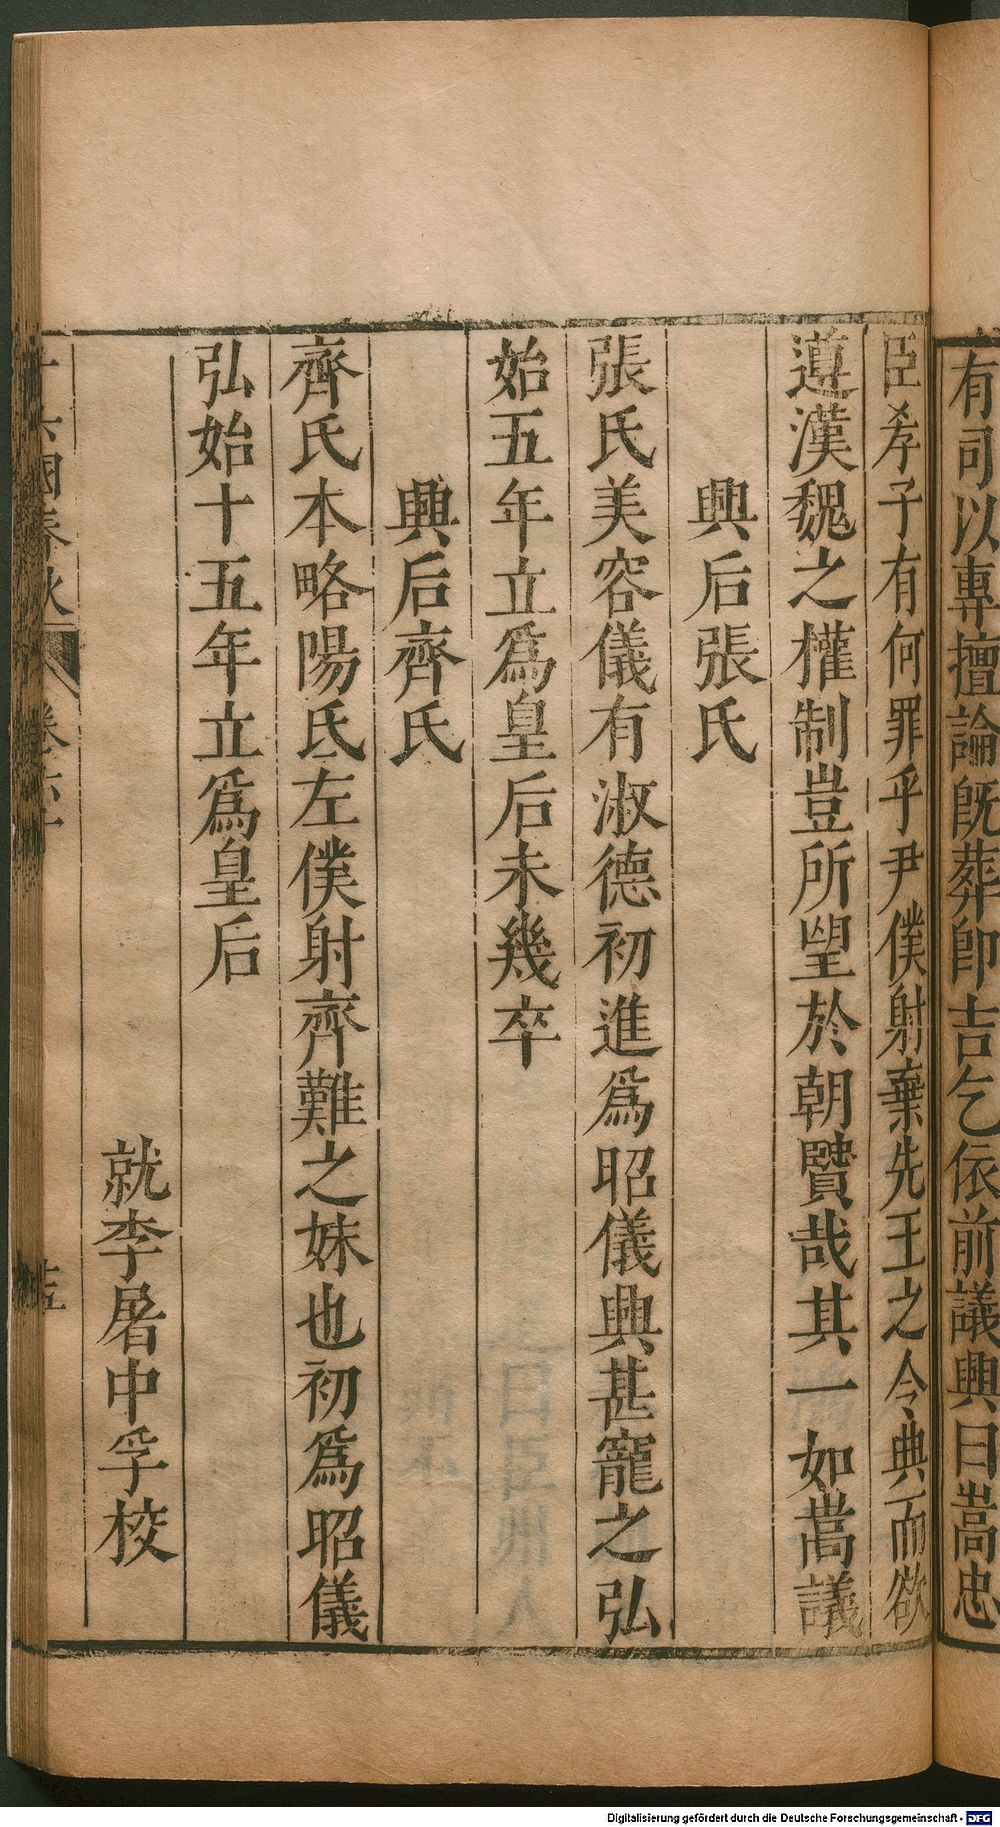 有司以專擅論旣葬卽吉乞依前議興曰嵩忠
臣孝子有何罪乎尹僕射棄先王之令典而欲
遵漢魏之權制豈所望於朝賢哉其一如嵩議
興后張氏
張氏美容儀有淑德初進爲昭儀興甚寵之弘
始五年立爲皇后未幾卒
興后齊氏
齊氏本略陽氐左僕射齊難之妹也初爲昭儀
弘始十五年立爲皇后
就李屠中孚校
國春秋
Digitalisierung gefördert durch die Deutsche Forschungsgemeinschaft - DFG